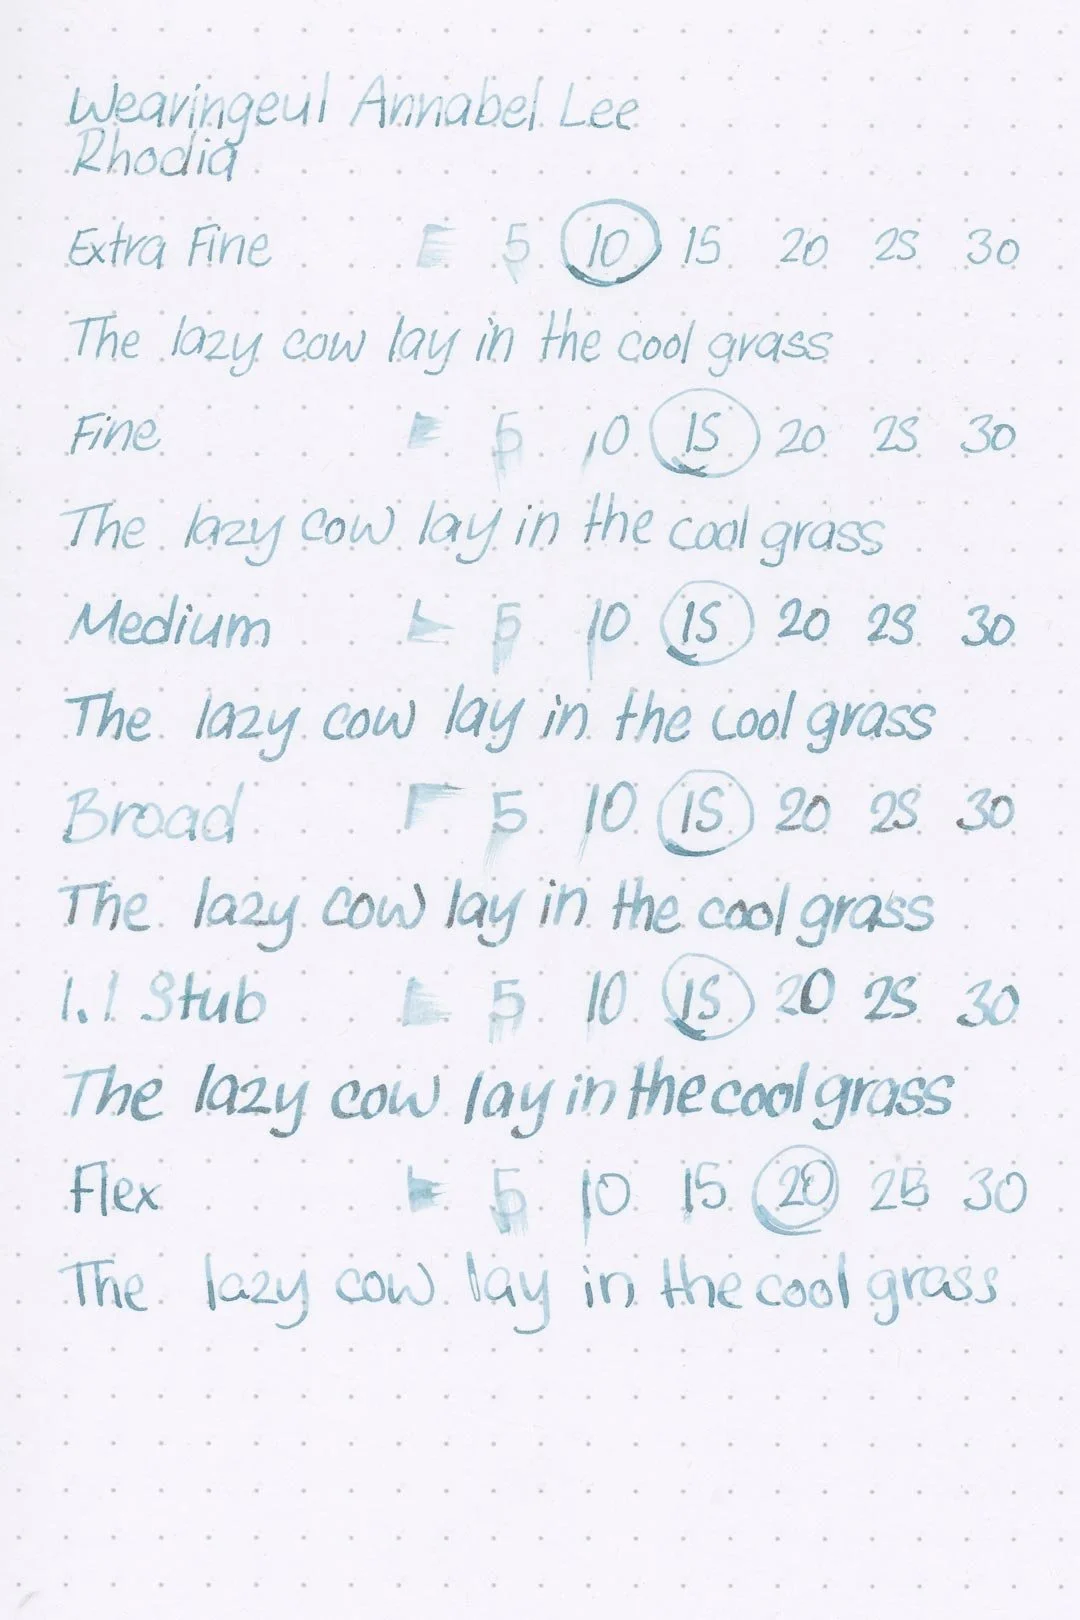 Wearingeul Annabel Lee
Rhodia
Extra Fine 5 10 15 20 25 30
The lazy cow lay in the cool grass
Fine 5 10 15 20 25 30
The lazy cow lay in the cool grass
Medium 5 10 15 20 25 30
The lazy cow lay in the cool grass
Broad 5 10 15 20 25 30
The lazy cow lay in the cool grass
1.1 Stub 5 10 15 20 25 30
The lazy cow lay in the cool grass
Flex 5 10 15 20 25 30
The lazy cow lay in the cool grass